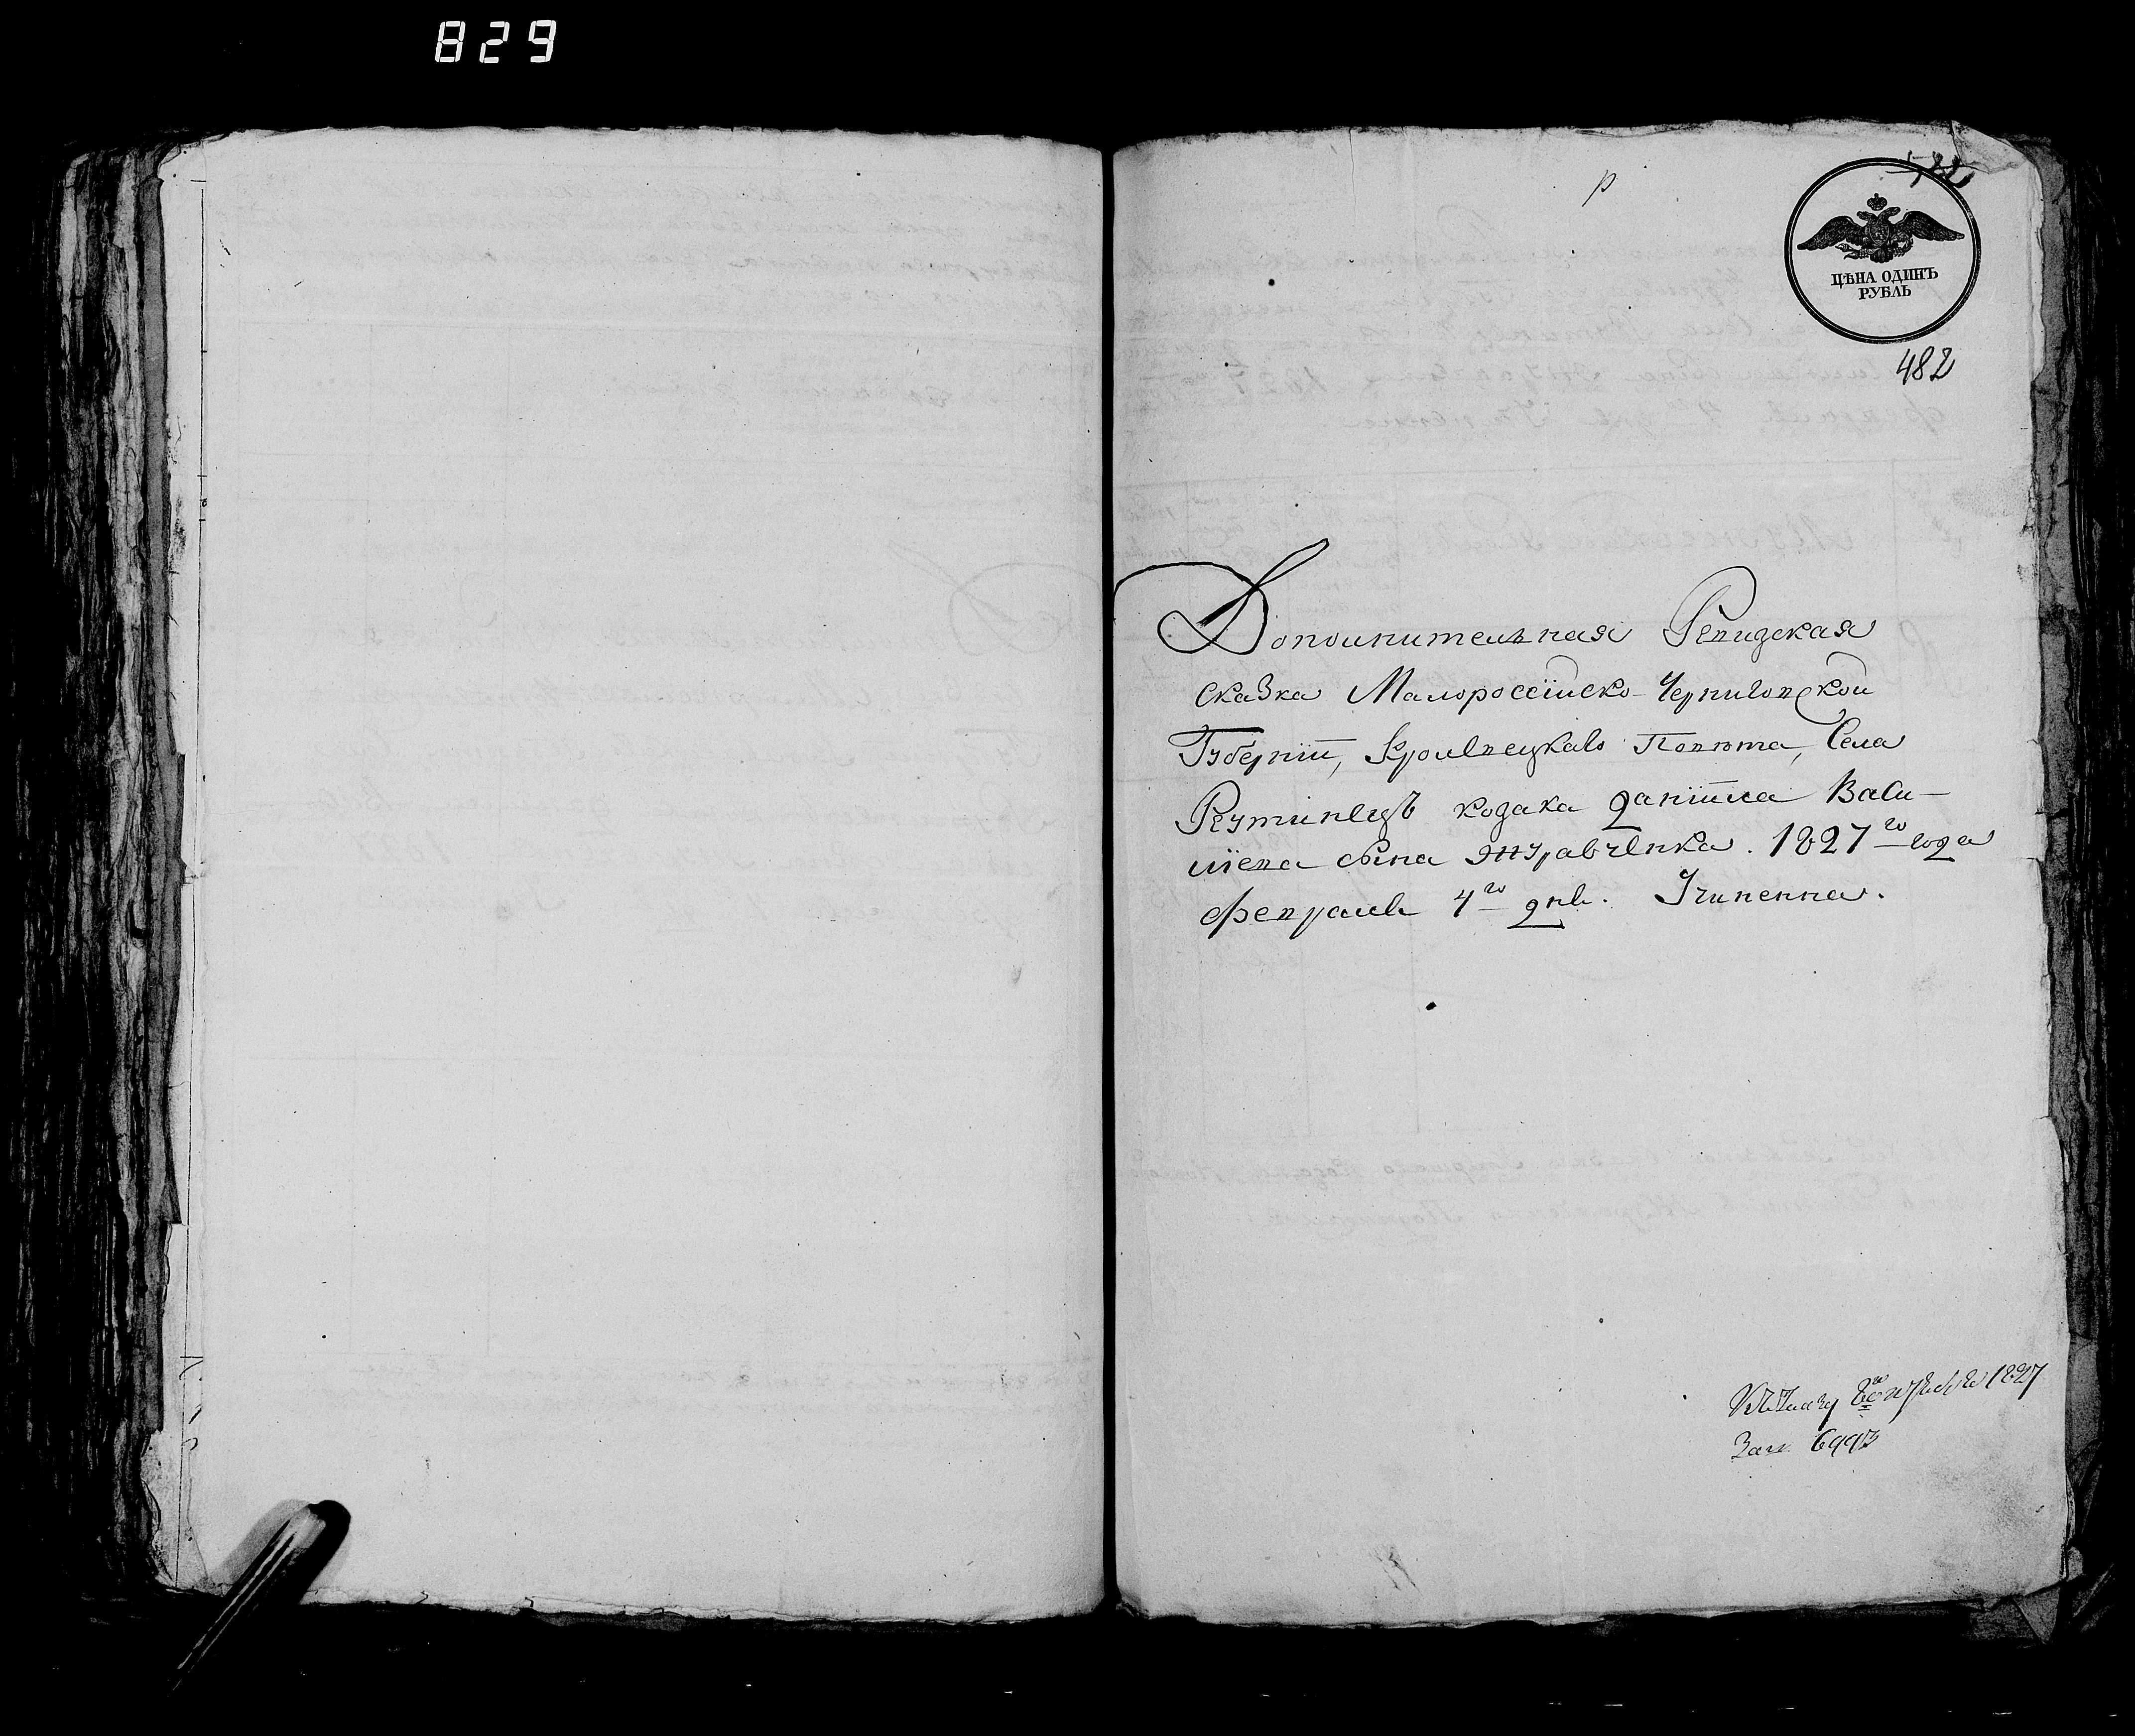 829
р
ЦѢНА ОДИНЪ
РУБЛЬ
482
Дополнительная Ревизская
сказка Малороссійско-Черниговской
Губерніи, Кролевецкаго Повѣта, Села
Реутинецъ козака Даніила Васи-
ліева сына Журавченка. 1827го года
февраля 4го дня. Учиненна.
1827